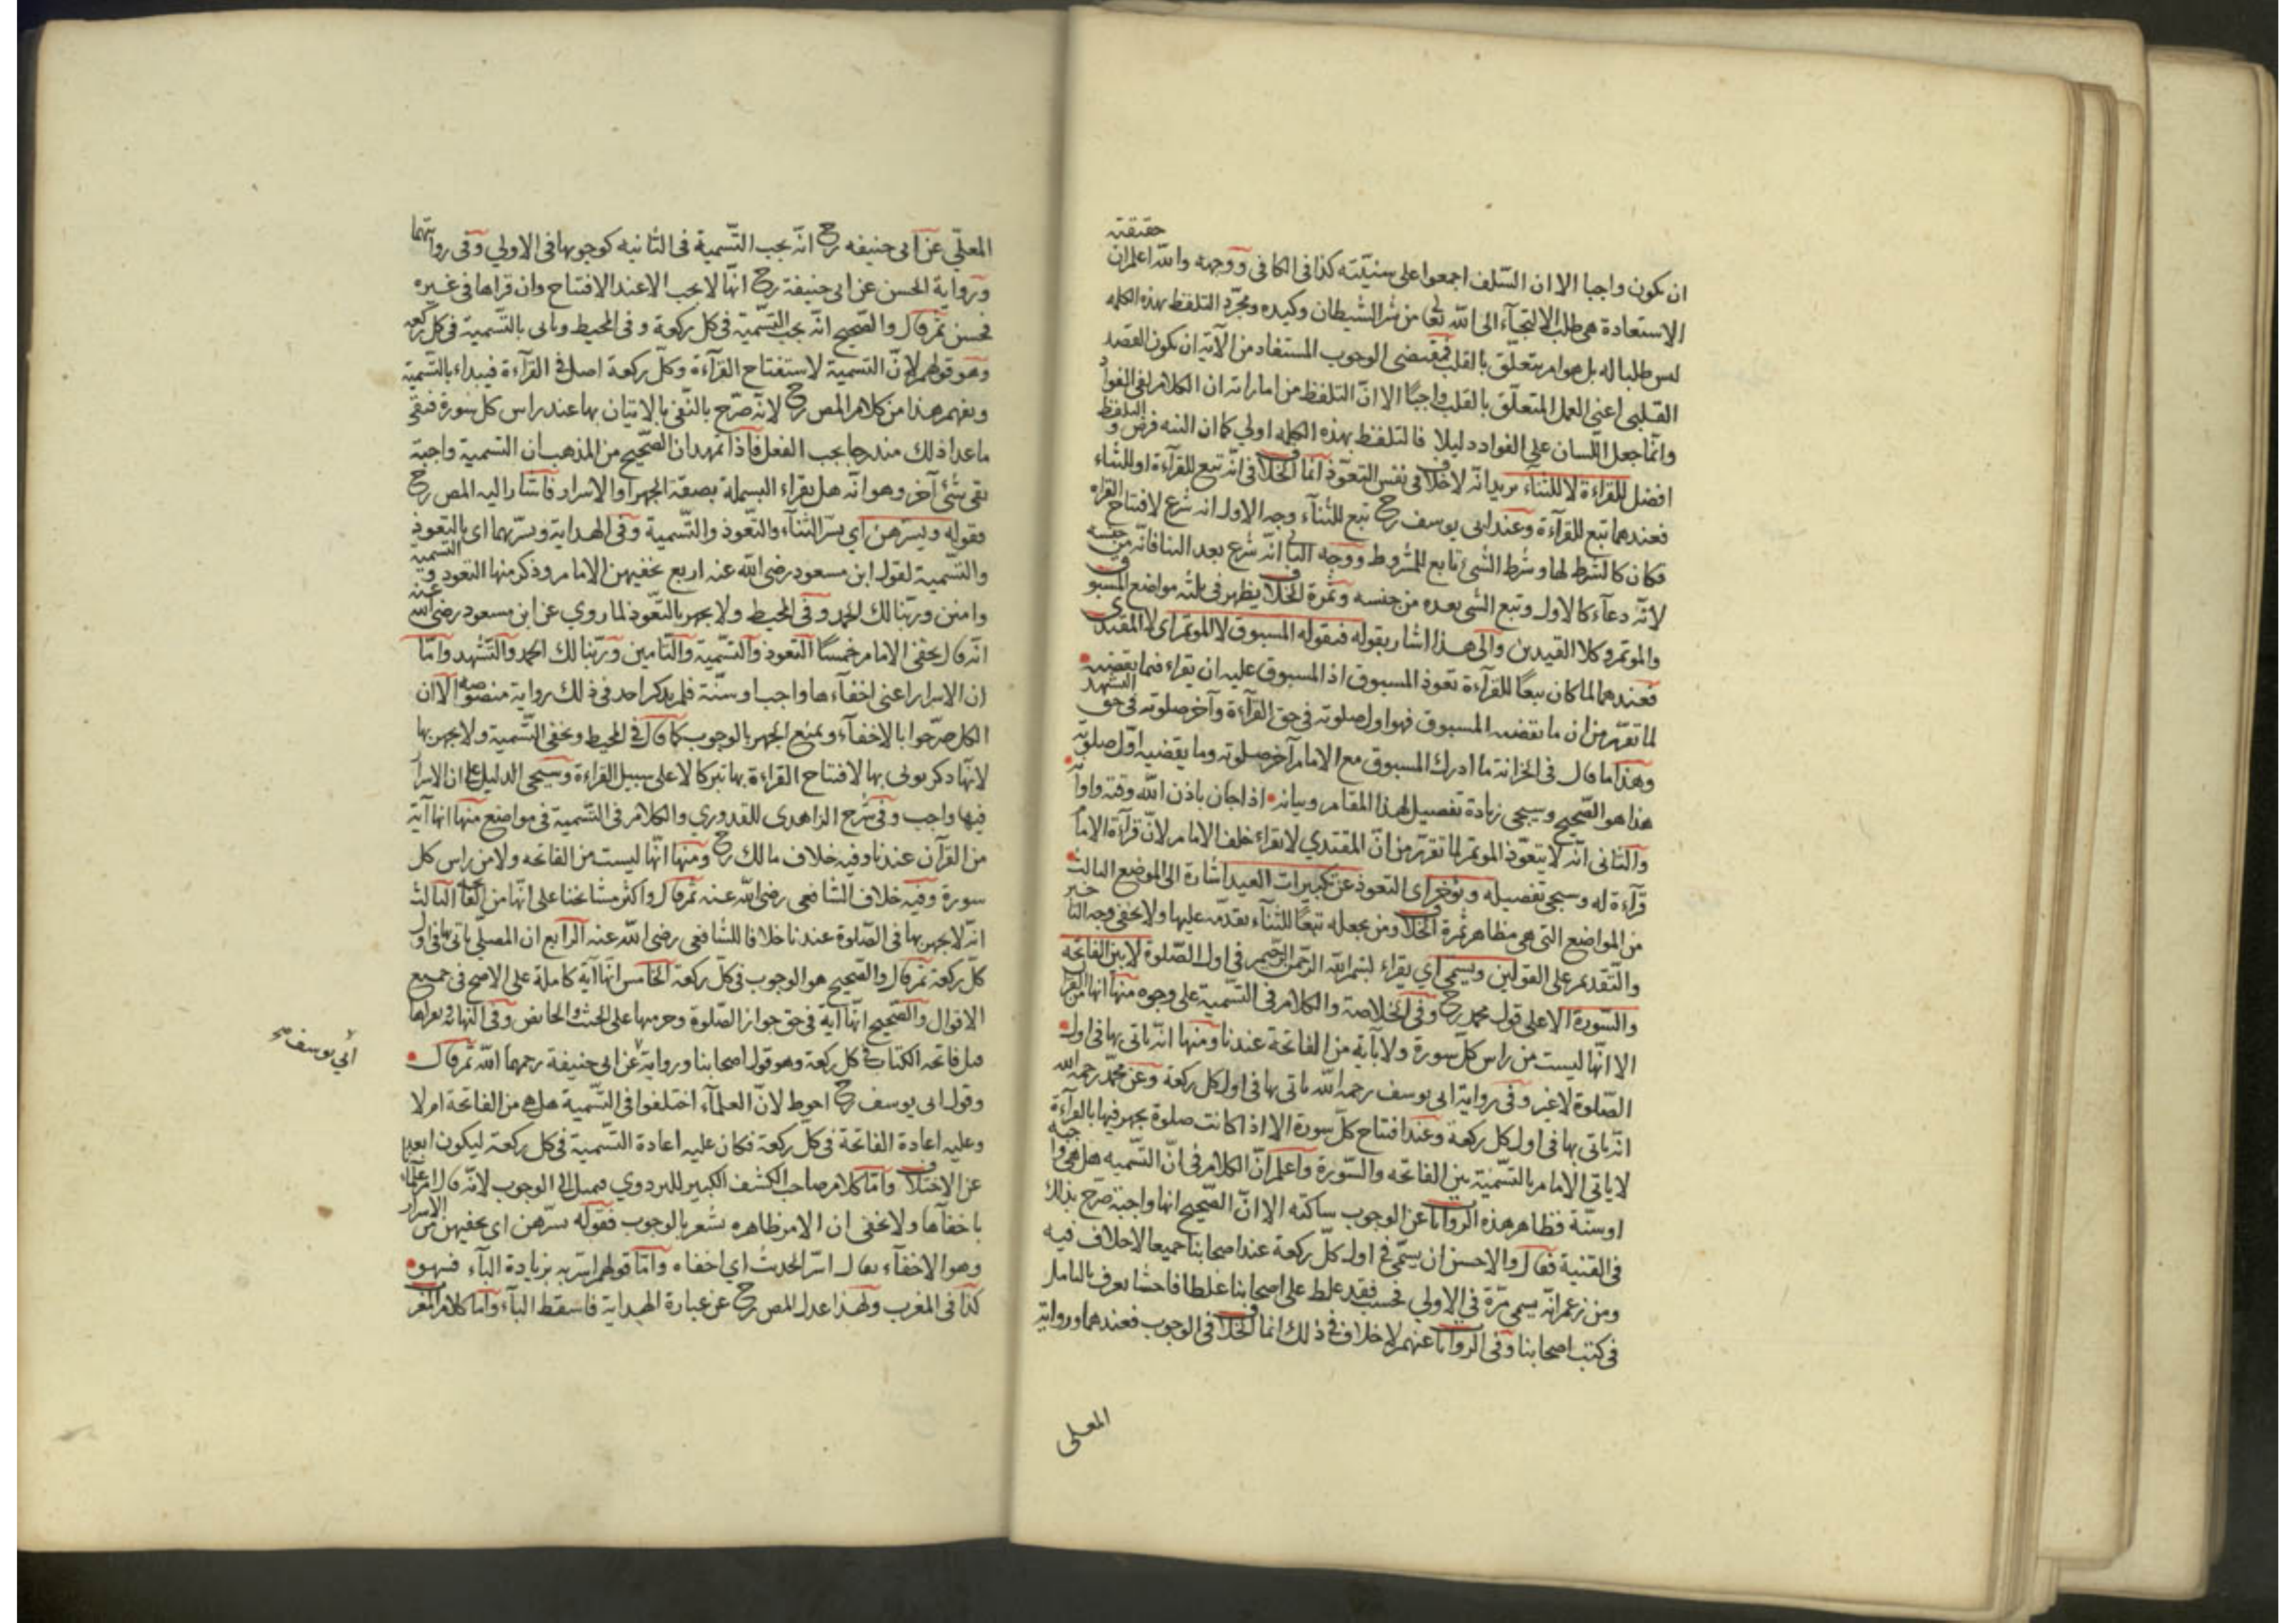 ان يكون واجبا الا ان السّلف اجمعوا على سنيّته كذا فى الكافى ووجهه والله اعلم ان حقيقة
الاستعاذة هى طلب الالتجآء الى الله تعا من شر الشيطان وكيده ومجرّد التلفظ بهذه الكلمه
ليس طلبا له بل هو امر يتعلّق بالقلب فمقتضى الوجوب المستفاد من الآية ان يكون القصد
القلبى اعنى العمل المتعلّق بالقلب واجبًا الا انّ التلفظ من اماراته ان الكلام لفى الفواد
وانّما جعل اللّسان على الفواد دليلا فالتلفظ بهذه الكلمه اولى كما ان النيه فرض والتلفظ
افضل للقراءة لا للثنآء يريد انّه لا خلاف فى نفس التعوّذ انّما الخلاف فى انّه تبع للقرآءة او للثناء
فعندهما تبع للقرآءة وعند ابى يوسف رح تبع للثنآء وجه الاول انه شرع لافتتاح القراه
فكان كالشرط لها وشرط الشئ تابع للمشروط ووجه الثانى انّه شرع بعد الثنا فانّه من جنسه
لانّه دعآء كالاول وتبع الشى بعده من جنسه وثمرة الخلاف يظهر فى ثلثه مواضع المسبوق
والموتم وكلا القيدين والى هذا اشار بقوله فيقوله المسبوق لا الموتم اى لا المقتدى
فعندهما لما كان تبعًا للقرآءة تعوذ المسبوق اذ المسبوق عليه ان يقراء فيما يقضيه
لما تقرّر من ان ما يقضيه المسبوق فهو اول صلوته فى حق القرآءة وآخر صلوته فى حق التشهد
وهذا ما قال فى الخزانة ما ادرك المسبوق مع الامام آخر صلوته وما يقضيه اوّل صلوته
هذا هو الصّحيح وسيجى زيادة تفصيل لهذا المقام وبيانه اذا جان باذن الله وقته واوانه
والثانى انّه لا يتعوّذ الموتم لما تقرّر من انّ المقتدي لا يقراء خلف الامام لانّ قرآءة الامام
قرآءة له وسيجى تفصيله ويؤخر اى التعوذ عن تكبيرات العيد اشارة الى الموضع الثالث
من المواضع التى هى مظاهر ثمرة الخلاف ومن يجعله تبعًا للثنآء يقدّمه عليها ولا يخفى وجه التاخير
والتّقديم على القولين ويسمّى اي يقراء بسم الله الرّحمن الرّحيم فى اول الصّلوة لا بين الفاتحه
والسّورة الا على قول محمد رح وفى الخلاصة والكلام فى التّسمية على وجوه منها انها من القرآن
الا انّها ليست من راس كلّ سورة ولا بآية من الفاتحة عندنا ومنها انّه ياتى بها فى اول
الصّلوة لا غير وفى رواية ابى يوسف رحمه الله ياتى بها فى اول كل ركعة وعن محمّد رحمه الله
انّه ياتى بها فى اول كل ركعة وعند افتتاح كلّ سورة الا اذا كانت صلوة يجهر فيها بالقرآءة
لا ياتى الامام بالتسّمية بين الفاتحه والسّورة واعلم انّ الكلام فى انّ التسّميه هل هى واجبة
او سنّة فظاهر هذه الروايا عن الوجوب ساكته الا انّ الصّحيح انها واجبة صرّح بذلك
فى القنية فقال والاحسن ان يسمّى فى اول كلّ ركعة عند اصحابنا جميعا لا خلاف فيه
ومن زعم انّه يسمى مرّة فى الاولى فحسب فقد غلط على اصحابنا غلطا فاحشا يعرف بالتامل
فى كتب اصحابنا وفى الروايا عنهم لا خلاف فى ذلك انما الخلاف فى الوجوب فعندهما ورواية
المعلى
المعلّي عن ابى حنيفه رح انّه يجب التّسمية فى الثانيه كوجوبها فى الاولي وفى روايتهما
ورواية الحسن عن ابى حنيفة رح انّها لا يجب الا عند الافتتاح وان قراها فى غيره
فحسن ثم قال والصّحيح انّه يجب التّسمية فى كل ركعة وفى المحيط وياتى بالتّسمية فى كل ركعه
وهو قولهم لانّ التسمية لاستفتاح القرآءة وكلّ ركعة اصل فى القرآءة فيبداء بالتّسمية
ويفهم هذا من كلام المص رح لانّه صرّح بالنّفى بالاتيان بها عند راس كل سورة فبقى
ماعدا ذلك مندرجا يجب الفعل فاذا تمهد ان الصّحيح من المذهب ان التسمية واجبة
بقى شئ آخر وهو انّه هل يقراء البسملة بصفة الجهر او الاسرار فاشار اليه المص رح
بقوله ويسرّهن اي يسرّ الثنآء والتّعوذ والتّسمية وفى الهداية ويسرّبهما اى بالتعوذ
والتّسمية لقول ابن مسعود رضى الله عنه اربع يخفيهن الامام وذكر منها التعود والتسمية
وامنن وربّنا لك الحمد وفى المحيط ولا يجهر بالتّعوذ لما روي عن ابن مسعود رضى الله عنه
انّه قال يخفى الامام خمسًا التعوذ والتسّمية والتّامين وربّنا لك الحمد والتّشهد وامّا
ان الاسرار اعنى اخفآءها واجب او سنّة فلم يذكر احد فى ذلك رواية منصوصه الا ان
الكل صرّحوا بالاخفآء ويمنع الجهر بالوجوب كما قال فى المحيط ويخفى التّسمية ولا يجهر بها
لانّها ذكر يوتى بها لافتتاح القراءة بها تبركا لا على سبيل القراءة وسيجى الدليل على ان الاسرار
فيها واجب وفى شرح الزاهدى للقدوري والكلام فى التّسمية فى مواضع منها انها آية
من القرآن عندنا وفيه خلاف مالك رح ومنها انّها ليست من الفاتحه ولا من راس كل
سورة وفيه خلاف الشافعى رضى الله عنه ثم قال واكثر مشائخنا على انّها من الفاتحه الثالث
انّه لا يجهر بها فى الصّلوة عندنا خلافا للشافعى رضى الله عنه الرابع ان المصلّي ياتى بها فى اول
كلّ ركعة ثم قال والصّحيح هو الوجوب فى كلّ ركعة الخامس انّها آية كاملة على الاصح فى جميع
الاقوال والصّحيح انّها آية فى حق جواز الصّلوة وحرمها على الجنب والحائض وفى النّهاية يقراها
قبل فاتحه الكتاب فى كل ركعة وهو قول اصحابنا ورواية عن ابى حنيفة رحمهما الله ثم قال
ابي يوسف
وقول ابى يوسف رح احوط لانّ العلمآء اختلفوا فى التّسمية هل هى من الفاتحة ام لا
وعليه اعادة الفاتحة فى كلّ ركعة فكان عليه اعادة التسّمية فى كل ركعة ليكون ابعد
عن الاختلاف وامّا كلام صاحب الكشف الكبير للبزدوي فميل الى الوجوب لانّه قال
باخفآها ولا يخفى ان الامر ظاهره يشعر بالوجوب فقوله يسرّهن اى يخفيهن من الاسرار
وهو الاخفآء يقال اسرّ الحديث اي اخفاه وامّا قولهم اسرّ به بزيادة البآء فسهو
كذا فى المغرب ولهذا عدل المص رح عن عبارة الهداية فاسقط البآء وامّا كلام المغر